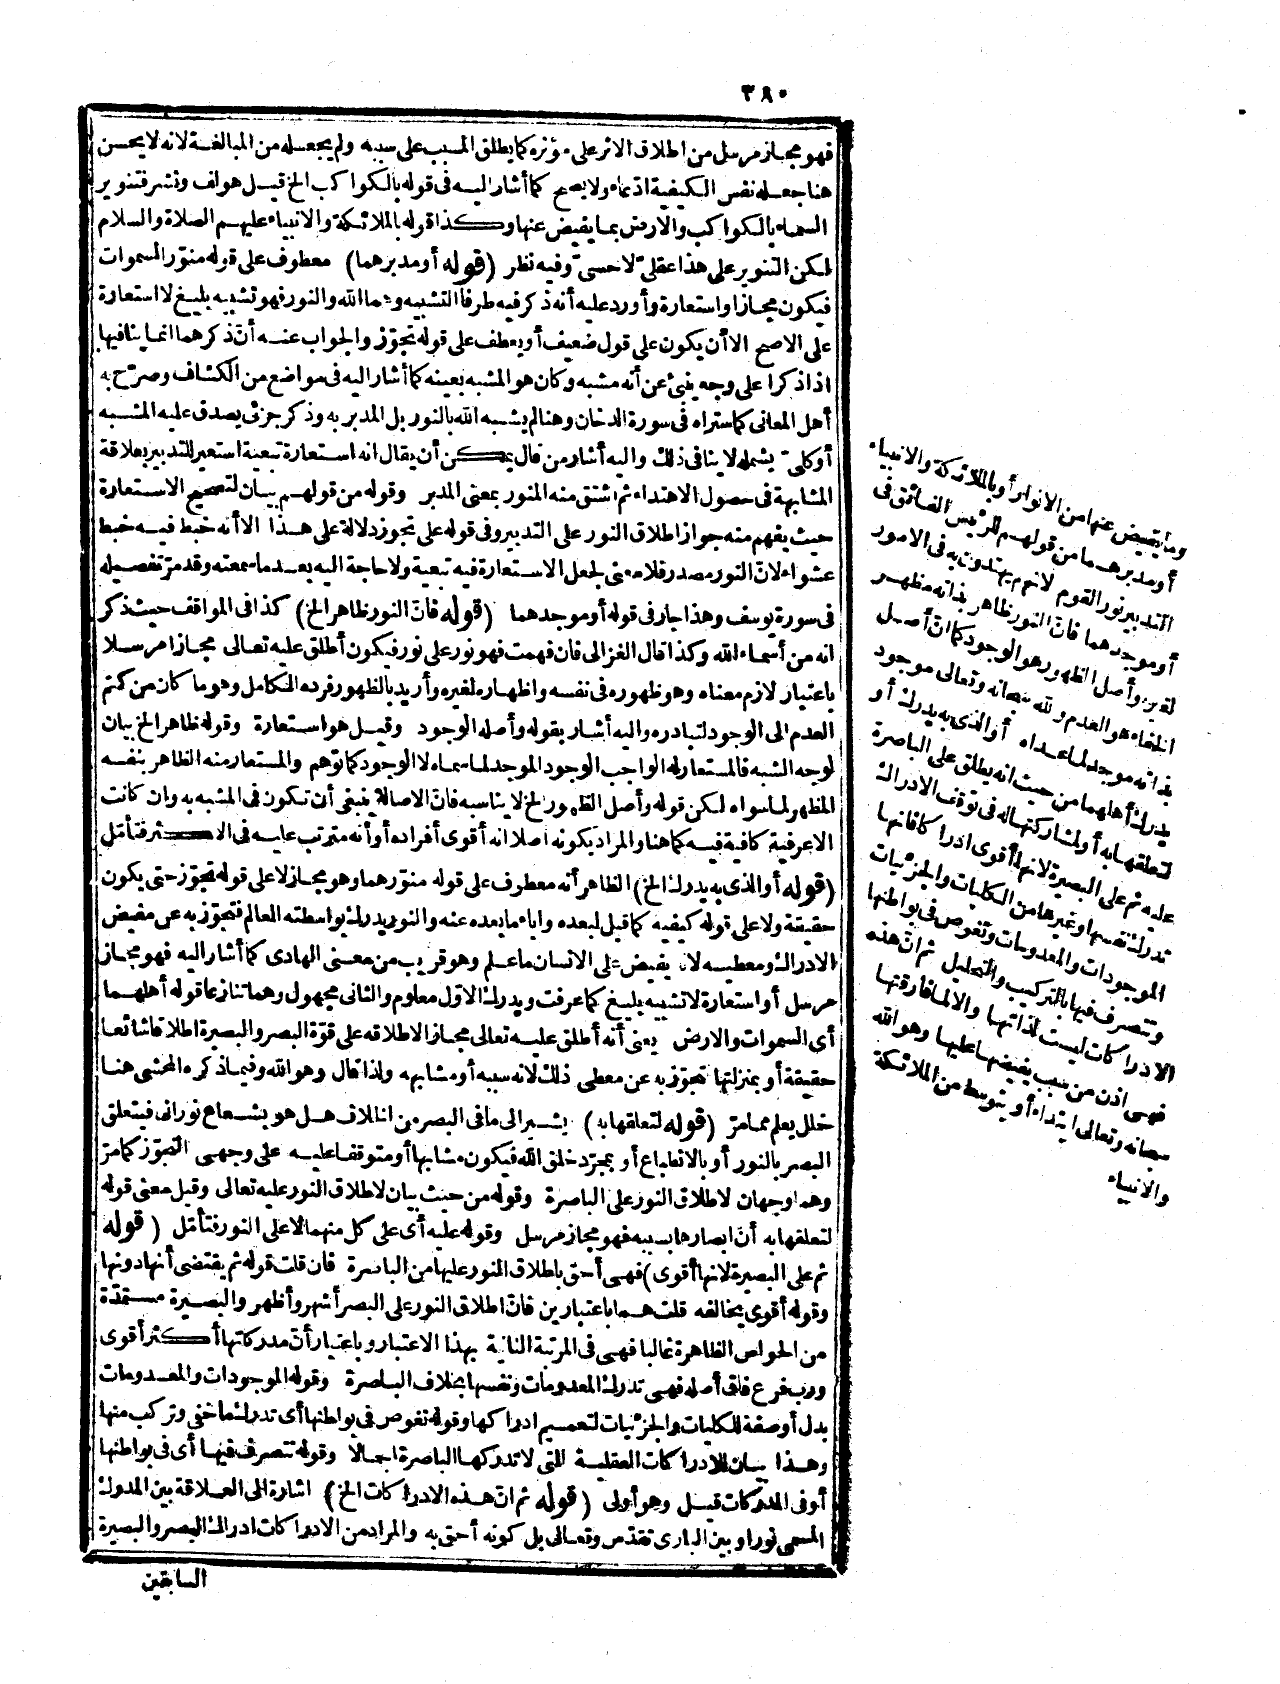 ٣٨٠
فهو مجاز مرسل من اطلاق الاثر على مؤثره كما يطلق المسبب على سببه ولم يجعله من المبالغة لانه لا يحسن
هنا جعله نفس الكيفية ادعاء ولا يصح كما أشار اليه فى قوله بالكواكب الخ قيل هو لف ونشر فتنوير
السماء بالكواكب والارض بما يفيض عنها وكذا قوله بالملائكة والانبياء عليهم الصلاة والسلام
لكن التنوير على هذا عقلىّ لا حسىّ وفيه نظر (قوله أو مدبرهما) معطوف على قوله منوّر السموات
فيكون مجازا واستعارة وأورد عليه أنه ذكر فيه طرفا التشبيه وهما الله والنور فهو تشبيه بليغ لا استعارة
على الاصح الا أن يكون على قول ضعيف أو يعطف على قوله تجوّز والجواب عنه أنّ ذكرهما انما ينافيها
اذا ذكرا على وجه ينبئ عن أنه مشبه وكان هو المشبه بعينه كما أشار اليه فى مواضع من الكشاف وصرّح به
أهل المعانى كما ستراه فى سورة الدخان وهنا لم يشبه الله بالنور بل المدبر به وذكر جزئى يصدق عليه المشبه
أو كلىّ يشمله لا ينافى ذلك واليه أشار من قال يمكن أن يقال انه استعارة تبعية استعير للتدبير بعلاقة
المشابهة فى حصول الاهتداء ثم اشتق منه المنور بمعنى المدبر وقوله من قولهم بيان لتصحيح الاستعارة
حيث يفهم منه جواز اطلاق النور على التدبير وفى قوله على تجوز دلالة على هذا الا أنه خبط فيه خبط
عشواء لانّ النور مصدر فلا معنى لجعل الاستعارة فيه تبعية ولا حاجة اليه بعد ما سمعته وقد مرّ تفصيله
فى سورة يوسف وهذا جار فى قوله أو موجدهما (قوله فانّ النور ظاهر الخ) كذا فى المواقف حيث ذكر
انه من أسماء الله وكذا قال الغزالى فان فهمت فهو نور على نور فيكون أطلق عليه تعالى مجازا مرسلا
باعتبار لازم معناه وهو ظهوره فى نفسه واظهاره لغيره وأريد بالظهور فرده الكامل وهو ما كان من كتم
العدم الى الوجود لتبادره واليه أشار بقوله وأصله الوجود وقيل هو استعارة وقوله ظاهر الخ بيان
لوجه الشبه فالمستعار له الواجب الوجود الموجد لما سماه لا الوجود كما توهم والمستعار منه الظاهر بنفسه
المظهر لما سواه لكن قوله وأصل الظهور الخ لا يناسبه فانّ الاصالة ينبغى أن تكون فى المشبه به وان كانت
الاعرفية كافية فيه كما هنا والمراد بكونه أصلا انه أقوى أفراده أو أنه مترتب عليه فى الاكثر فتأمّل
(قوله أو الذى به يدرك الخ) الظاهر أنه معطوف على قوله منوّرهما وهو مجاز لا على قوله تجوّز حتى يكون
حقيقة ولا على قوله كيفيه كما قيل لبعده واباء ما بعده عنه والنور يدرك بواسطته العالم فتجوّز به عن مفيض
الادراك ومعطيه لانه يفيض على الانسان ما علم وهو قريب من معنى الهادى كما أشار اليه فهو مجاز
مرسل أو استعارة لا تشبيه بليغ كما عرفت ويدرك الاوّل معلوم والثانى مجهول وهما تنازعا قوله أهلهما
أى السموات والارض يعنى أنه أطلق عليه تعالى مجاز الاطلاقه على قوّة البصر والبصيرة اطلاقا شائعا
حقيقة أو بمنزلتها تجوّز به عن معطى ذلك لانه سببه أو مشابهه ولذا قال وهو الله وفيما ذكره المحشى هنا
خلل يعلم مما مرّ (قوله لتعلقها به) يشير الى ما فى البصر من الخلاف هل هو بشعاع نورانى فيتعلق
البصر بالنور أو بالانطباع أو بمجرّد خلق الله فيكون مشابها أو متوقفا عليه على وجهى التجوّز كما مرّ
وهما وجهان لاطلاق النور على الباصرة وقوله من حيث بيان لاطلاق النور عليه تعالى وقيل معنى قوله
لتعلقها به أنّ ابصارها بسببه فهو مجاز مرسل وقوله عليه أى على كل منهما لا على النور فتأمّل (قوله
ثم على البصيرة لانها أقوى) فهى أحق باطلاق المنور عليها من الباصرة فان قلت قوله ثم يقتضى أنها دونها
وقوله أقوى يخالفه قلت هما باعتبارين فانّ اطلاق النور على البصر أشهر وأظهر والبصيرة مستمدّة
من الحواس الظاهرة غالبا فهى فى المرتبة الثانية بهذا الاعتبار وباعتبار أنّ مدركاتها أكثر أقوى
ورب فرع فاق أصله فهى تدرك المعدومات ونفسها بخلاف الباصرة وقوله الموجودات والمعدومات
بدل أو صفة للكليات والجزئيات لتعميم ادراكها وقوله تغوص فى بواطنها أى تدرك ما خفى وتركب منها
وهذا بيان للادراكات العقلية التى لا تدركها الباصرة اجمالا وقوله تتصرف فيها أى فى بواطنها
أو فى المدركات قيل وهو أولى (قوله ثم انّ هذه الادراكات الخ) اشارة الى العلاقة بين المدرك
المسمى نورا وبين البارى تقدّس وتعالى بل كونه أحق به والمراد من الادراكات ادراك البصر والبصيرة
السابقين
وما يفيض عنها من الانوار أو بالملائكة والانبياء
أو مدبرهما من قولهم للرئيس الفائق فى
التدبير نور القوم لانهم يهتدون به فى الامور
أو موجدهما فانّ النور ظاهر بذاته مظهر
لغيره وأصل الظهور هو الوجود كما انّ أصل
الخفاء هو العدم والله سبحانه وتعالى موجود
بذاته موجد لما عداه أو الذى به يدرك أو
يدرك أهلهما من حيث انه يطلق على الباصرة
لتعلقها به أو لمشاركتها له فى توقف الادراك
عليه ثم على البصيرة لانها أقوى ادراكا فانها
تدرك نفسها وغيرها من الكليات والجزئيات
الموجودات والمعدومات وتغوص فى بواطنها
وتتصرف فيها بالتركيب والتحليل ثم انّ هذه
الادراكات ليست لذاتها والا لما فارقتها
فهى اذن من سبب يفيضها عليها وهو الله
سبحانه وتعالى ابتداء أو بتوسط من الملائكة
والانبياء